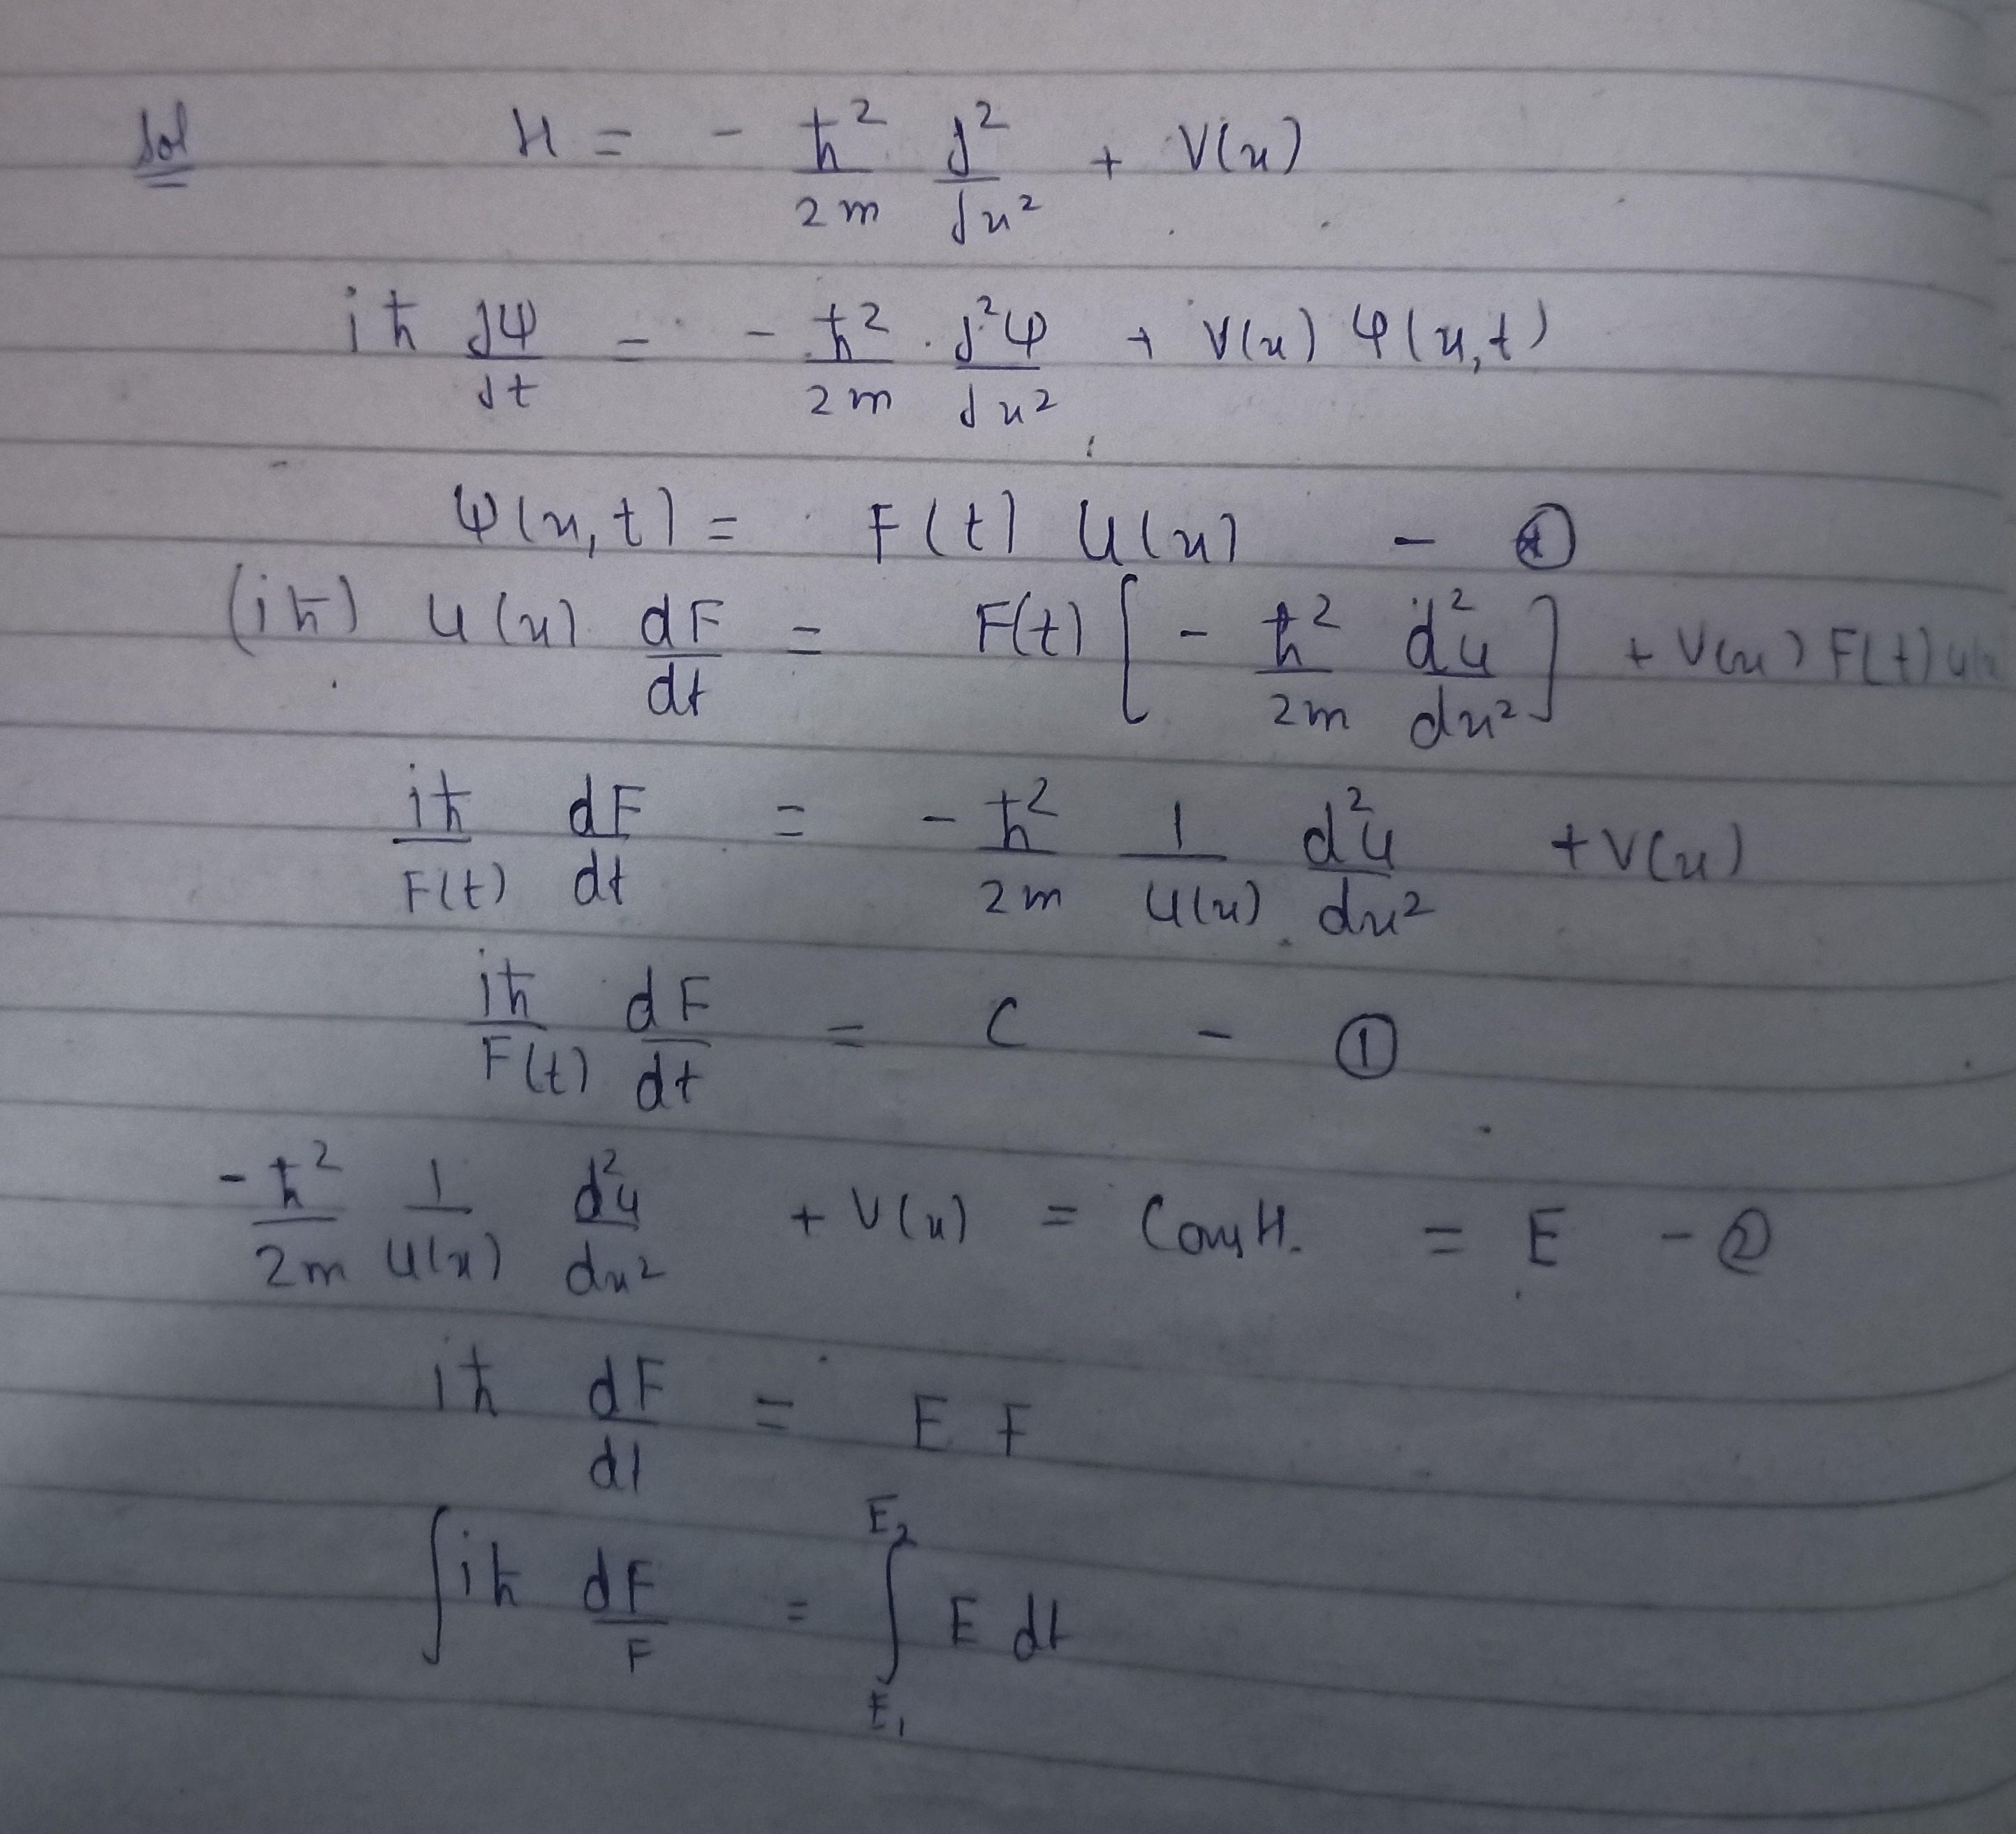 Sol H = - ħ²/2m ∂²/∂x² + V(x)
iħ ∂ψ/∂t = - ħ²/2m . ∂²ψ/∂x² + V(x) ψ(x,t)
ψ(x,t) = F(t) u(x) -
(iħ) u(x) dF/dt = F(t) [ - ħ²/2m d²u/dx² ] + V(x) F(t) u(x
iħ/F(t) dF/dt = - ħ²/2m 1/u(x) d²u/dx² + V(x)
iħ/F(t) dF/dt = C - ①
- ħ²/2m 1/u(x) d²u/dx² + V(x) = Constt. = E - ②
iħ dF/dt = E F
∫ iħ dF/F = ∫_{E₁}^{E₂} E dt